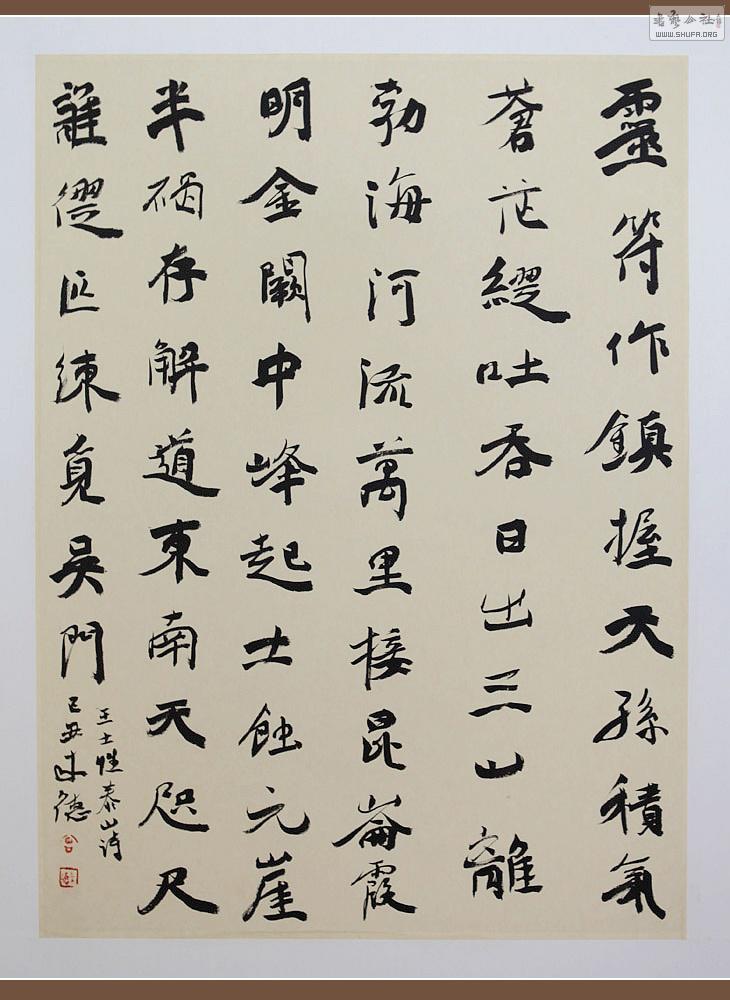 靈符作鎮握天孫積氣
蒼茫繆吐吞日出三山離
勃海河流萬里接昆崙霞
明金闕中峰起土蝕元崖
半碣存解道東南天咫尺
誰從匹練覓吳門
王士性泰山诗
己丑建德
书艺公社
WWW.SHUFA.ORG